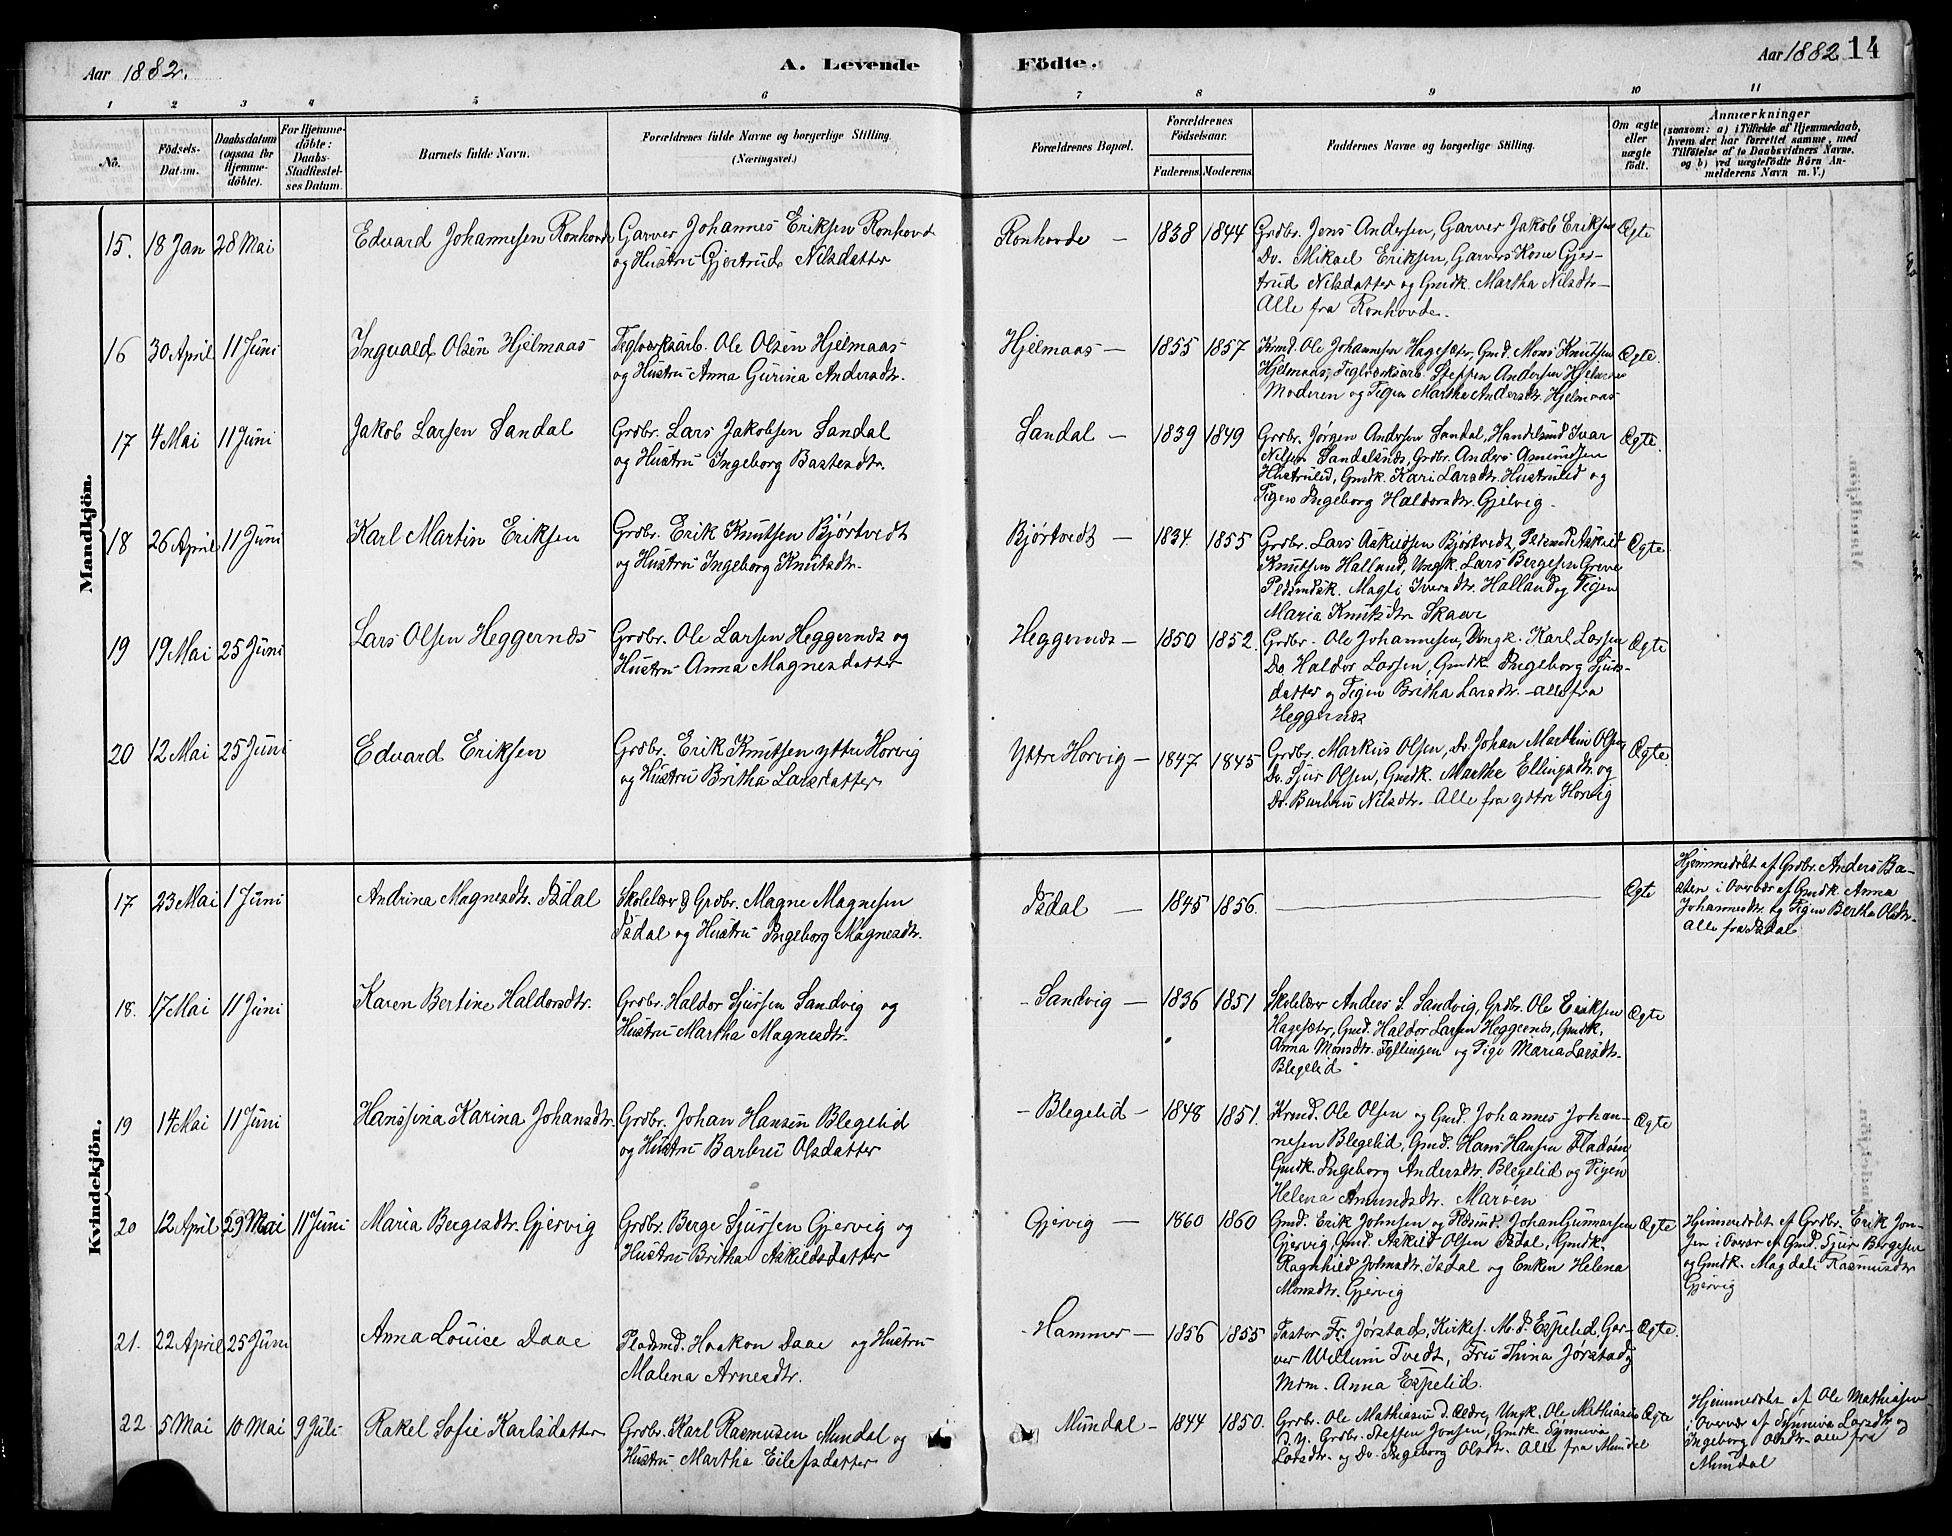 Aar 1882.
A. Levende Födte.
Aar 1882 14
1 2 3 4 5 6 7 8 9 10 11
No.
Födsels-
Datum.
Daabsdatum
(ogsaa for
Hjemme-
döbte).
For Hjemme-
döbte:
Daabs-
Stadfæstel-
ses Datum.
Barnets fulde Navn.
Forældrenes fulde Navne og borgerlige Stilling.
(Næringsvei.)
Forældrenes Bopæl.
Forældrenes
Födselsaar.
Faderens Moderens
Faddernes Navne og borgerlige Stilling.
Om ægte
eller
uægte
födt.
Anmærkninger
(saasom: a) i Tilfælde af Hjemmedaab,
hvem der har forrettet samme, med
Tilföielse af to Daabsvidners Navne,
og b) ved uægtefödte Börn An-
melderens Navn m. V.)
Mandkjön.
15. 18 Jan 28 Mai
Edvard Johannesen Ronhovde
Garver Johannes Eriksen Ronhovd
og Hustru Gjertrud Nilsdatter
Ronhovde — 1838 1844
Grdbr. Jens Andersen, Garver Jakob Eriksen
Do. Mikael Eriksen, Garvers Kone Gjer-
trud Nilsdatter og Gmdk. Martha Nilsdtr—
Alle fra Ronhovde.
Ægte
16 30 April 11 Juni
Ingvald Olsen Hjelmaas
Teglværksarb. Ole Olsen Hjelmaas
og Hustru Anna Gurina Andersdtr.
Hjelmaas — 1855 1857
Krmd. Ole Johannesen Hagesæter, Gmd. Mons Knutsen
Hjelmaas, Teglværksarb. Steffen Andersen Hjelmaas
Moderen og Pigen Martha Andersdtr. Hjelmaas
Ægte.
17 4 Mai 11 Juni
Jakob Larsen Sandal
Grdbr. Lars Jakobsen Sandal
og Hustru Ingeborg Bastesdtr.
Sandal — 1839 1849
Grdbr. Jørgen Andersen Sandal, Handelsmd Ivar
Nilsen Sandalsnds, Grdbr. Anders Amundsen
Hustrulid, Gmdk. Kari Larsdtr. Hustrulid og
Pigen Ingeborg Haldorsdtr. Gjelvig—
Ægte.
18 26 April 11 Juni
Karl Martin Eriksen
Grdbr. Erik Knutsen Bjørtvedt
og Hustru Ingeborg Knutsdtr.
Bjørtvedt — 1834 1855
Grdbr. Lars Askildsen Bjørtvedt, Pldsmd. Askild
Knutsen Halland, Ungk. Lars Bergesen Greve
Pldsmdsk. Magli Iversdtr. Halland og Pigen
Maria Knutsdtr. Skaar
Ægte
19 19 Mai 25 Juni
Lars Olsen Heggernæs
Grdbr. Ole Larsen Heggernæs og
Hustru Anna Magnesdatter
Heggernæs — 1850 1852.
Grdbr. Ole Johannesen, Ungk. Karl Larsen
Do. Haldor Larsen, Gmdk. Ingeborg Sjurs-
datter og Pigen Britha Larsdtr. — alle fra
Heggernæs
Ægte
20 12 Mai 25 Juni
Edvard Eriksen
Grdbr. Erik Knutsen Yttre Horvig
og Hustru Britha Larsdatter
Yttre Horvig — 1847 1845
Grdbr. Markus Olsen, Do. Johan Martin Olsen
Do. Sjur Olsen, Gmdk. Marthe Ellingsdtr. og
Do. Barbru Nilsdtr. Alle fra yttre Horvig
Ægte
Kvindekjön.
17 23 Mai 1 Juni
Andrina Magnesdtr. Isdal
Skolelær. & Grdbr. Magne Magnesen
Isdal og Hustru Ingeborg Magnesdtr.
Isdal — 1845 1856.
Ægte
Hjemmedøbt af Grdbr. Anders
i Overvær af Gmdk. Anna
Johannesdtr. og Pigen Bertha Olsdtr.
alle fra Isdal
18. 17 Mai 11 Juni
Karen Bertine Haldorsdtr.
Grdbr. Haldor Sjursen Sandvig og
Hustru Martha Magnesdtr.
— Sandvig — 1836 1851
Skolelær Anders S. Sandvig, Grdbr. Ole Eriksen
Hagesæter, Gmd. Haldor Larsen Heggernæs, Gmdk.
Anna Monsdtr. Fyllingen og Pige Maria Larsdtr.
Blegelid
Ægte
19 14 Mai 11 Juni
Hanssina Karina Johansdtr.
Grdbr. Johan Hansen Blegelid
og Hustru Barbru Olsdatter
— Blegelid — 1848 1851.
Krmd. Ole Olsen og Gmd. Johannes Johan-
nesen Blegelid, Gmd. Hans Hansen Fladøen,
Gmdk. Ingeborg Andersdtr. Blegelid og Pigen
Helena Amundsdtr. Marøen
Ægte
20 12 April 29 Mai 11 Juni
Maria Bergesdtr. Gjervig
Grdbr. Berge Sjursen Gjervig og
Hustru Britha Askildsdatter
Gjervig — 1860 1860
Gmd. Erik Johnsen og Pldsmd. Johan Gunnarsen
Gjervig, Gmd. Askild Olsen Isdal, Gmdk.
Ragnhild Johnsdtr. Isdal og Enken Helena
Monsdtr. Gjervig
Ægte
Hjemmedøbt af Grdbr. Erik Jon-
sen i Overvær af Gmd. Sjur Bergesen
og Gmdk. Magdali Rasmusdtr
Gjervig
21. 22 April 25 Juni
Anna Louise Daae
Pladsmd. Haakon Daae og Hustru
Malena Arnesdtr.
— Hammer — 1856 1855
Pastor Fr. Jørstad, Kirkes. M. d. Espelid, Gar-
ver Willum Tvedt, Fru Thina Jørstad og
Mdm. Anna Espelid.
Ægte.
22 5 Mai 10 Mai 9 Juli
Rakel Sofie Karlsdatter
Grdbr. Karl Rasmusen Mundal og
Hustru Martha Eilefsdatter
Mundal — 1844 1850.
Grdbr. Ole Mathiasen d. Ældre, Ungk. Ole Mathiasen
d. Y. Grdbr. Steffen Jonsen, Gmdk Synneva
Larsdtr. og Do. Ingeborg Olsdtr. Alle fra Mundal
Ægte
Hjemmedøbt af Ole Mathiasen
i Overvær af Synneva Larsdtr og
Ingeborg Olsdtr— alle fra
Mundal